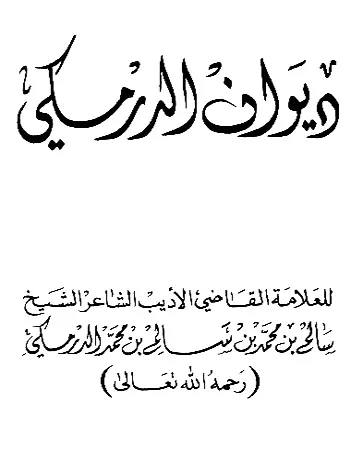 ديوان الدرمكي
للعلامة القاضي الأديب الشاعر الشيخ
سالم بن محمد بن سالم بن محمد الدرمكي
(رحمه الله تعالى)